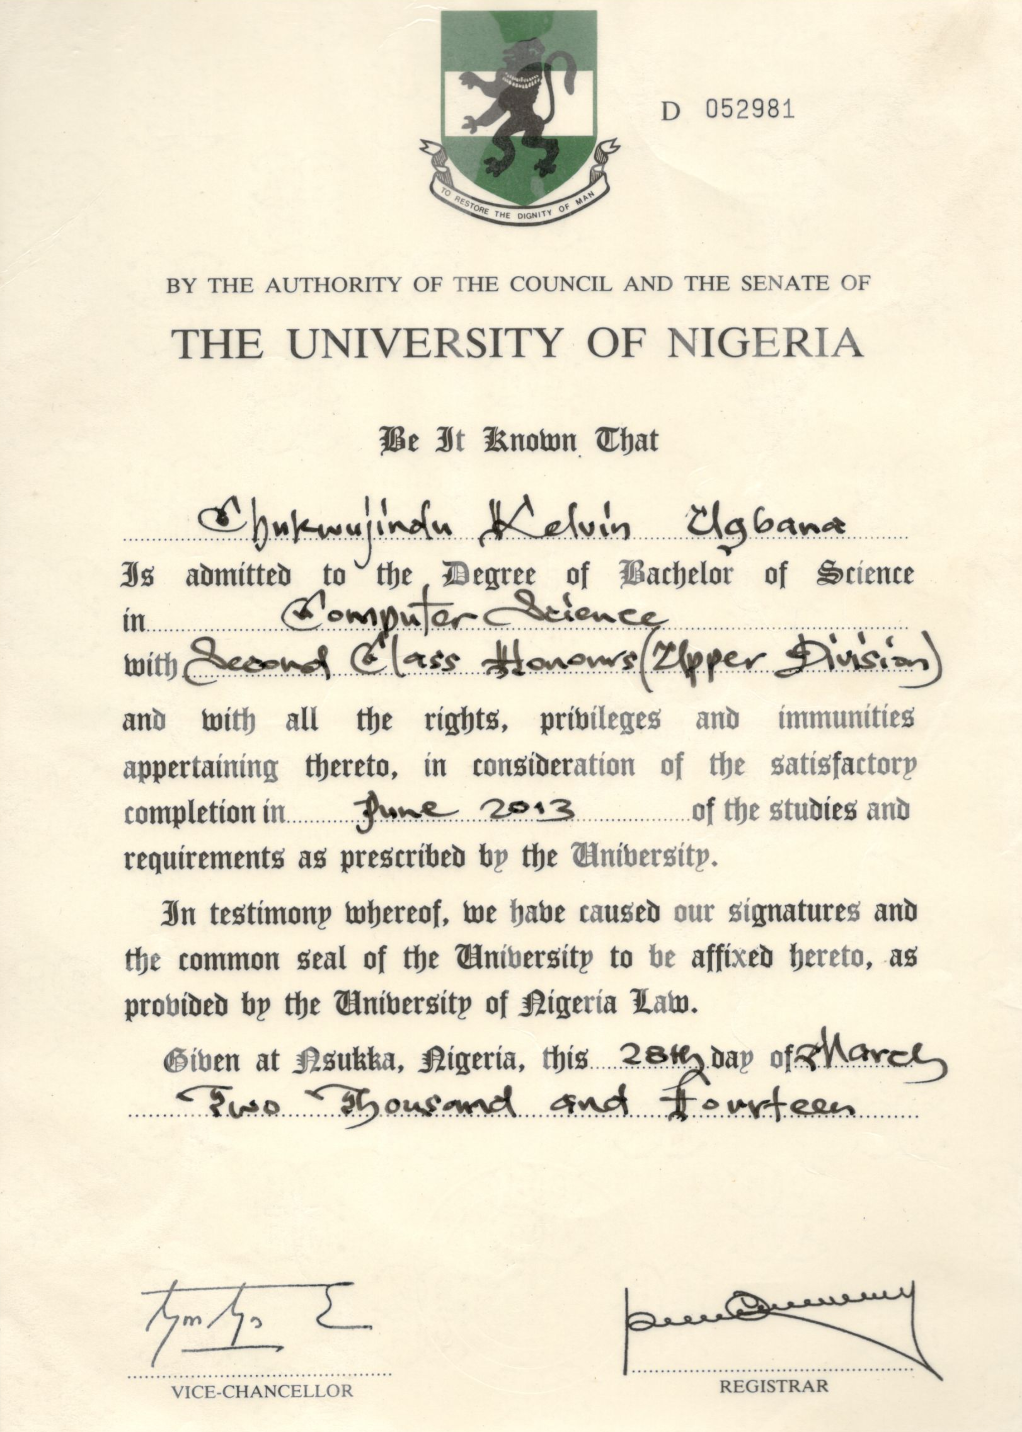 D 052981
TO RESTORE THE DIGNITY OF MAN
BY THE AUTHORITY OF THE COUNCIL AND THE SENATE OF
THE UNIVERSITY OF NIGERIA
Be It Known That
Chukwujindu Kelvin Ugbana
Is admitted to the Degree of Bachelor of Science
in Computer Science
with Second Class Honours (Upper Division)
and with all the rights, privileges and immunities
appertaining thereto, in consideration of the satisfactory
completion in June 2013 of the studies and
requirements as prescribed by the University.
In testimony whereof, we have caused our signatures and
the common seal of the University to be affixed hereto, as
provided by the University of Nigeria Law.
Given at Nsukka, Nigeria, this 28th day of March
Two Thousand and Fourteen
VICE-CHANCELLOR
REGISTRAR